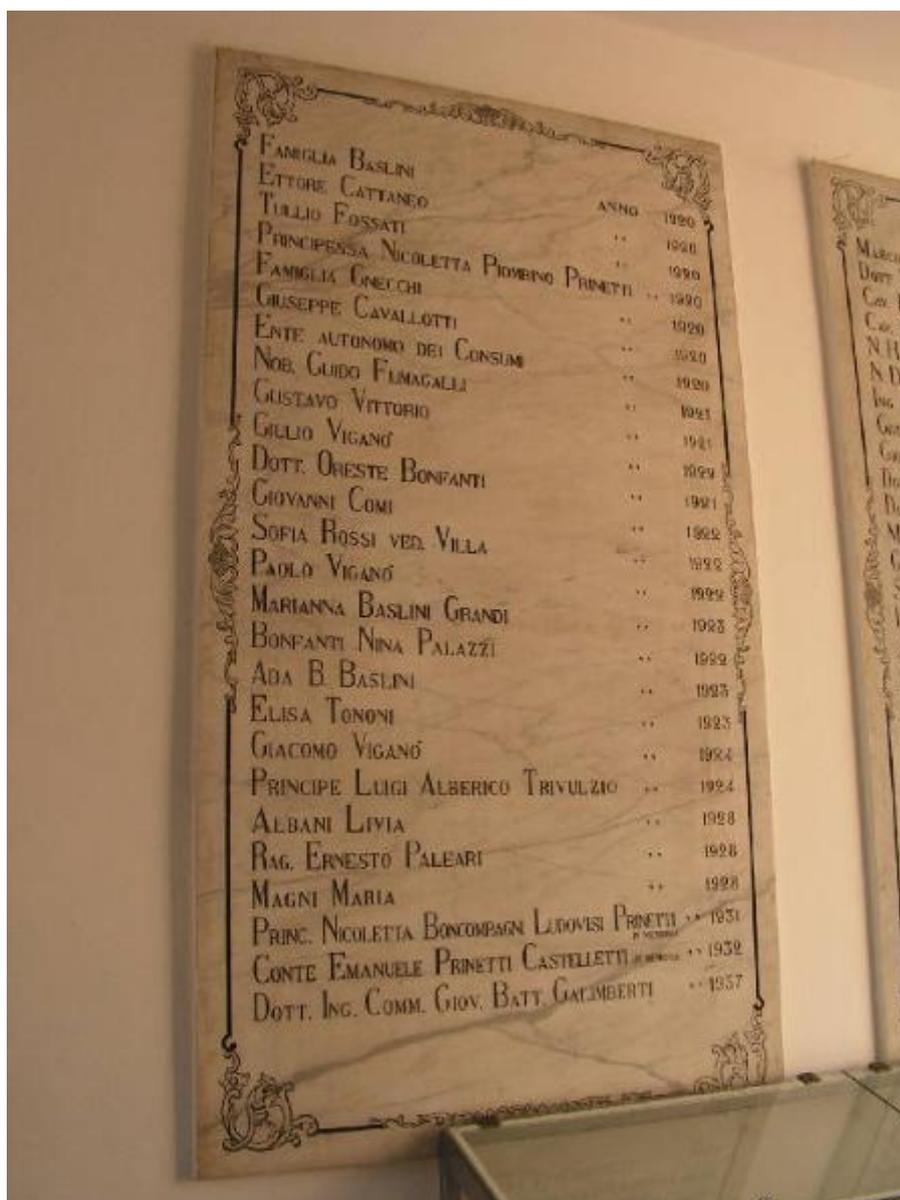 FAMIGLIA BASLINI ANNO 1920
ETTORE CATTANEO " 1920
TULLIO FOSSATI " 1920
PRINCIPESSA NICOLETTA PIOMBINO PRINETTI " 1920
FAMIGLIA GNECCHI " 1920
GIUSEPPE CAVALLOTTI " 1920
ENTE AUTONOMO DEI CONSUMI " 1920
NOB. GUIDO FUMAGALLI " 1921
GUSTAVO VITTORIO " 1921
GIULIO VIGANÒ " 1922
DOTT. ORESTE BONFANTI " 1921
GIOVANNI COMI " 1922
SOFIA ROSSI VED. VILLA " 1922
PAOLO VIGANÒ " 1922
MARIANNA BASLINI GRANDI " 1923
BONFANTI NINA PALAZZI " 1922
ADA B. BASLINI " 1923
ELISA TONONI " 1923
GIACOMO VIGANÒ " 1924
PRINCIPE LUIGI ALBERICO TRIVULZIO " 1924
ALBANI LIVIA " 1928
RAG. ERNESTO PALEARI " 1928
MAGNI MARIA " 1928
PRINC. NICOLETTA BONCOMPAGNI LUDOVISI PRINETTI " 1931
IN MEMORIA
CONTE EMANUELE PRINETTI CASTELLETTI IN MEMORIA " 1932
DOTT. ING. COMM. GIOV. BATT. GALIMBERTI " 1937
MARCO
DOTT
CAV.
CAV.
N.H
N.D
ING